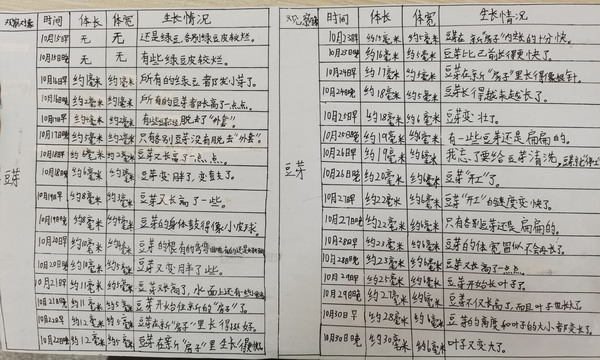 观察对象 时间 体长 体宽 生长情况
豆芽
10月15日早 无 无 还是绿豆,个别绿豆皮皱烂。
10月15日晚 无 无 有些绿豆皮皱烂。
10月16日早 约1毫米 约1毫米 所有的绿豆都发小芽了。
10月16日晚 约2毫米 约2毫米 所有的豆芽都长高了一点点。
10月17日早 约2毫米 脱去了“外套”。
10月17日晚 约5毫米 约2毫米 只有个别豆芽没有脱去“外套”。
10月18日早 约6毫米 豆芽又长高了一点点。
10月18日晚 约6毫米 豆芽变胖了,变直了。
10月19日早 约8毫米 约3毫米 豆芽又长高了一些。
10月19日晚 约8毫米 豆芽的身体鼓得像小皮球。
10月20日早 约10毫米 豆芽的根有的弯弯曲曲
10月20日晚 约10毫米 豆芽又变胖了些。
10月21日早 约11毫米 豆芽长高了,水面上还有一些
10月21日晚 约11毫米 豆芽开始住新的“房子”了。
10月22日早 约12毫米 豆芽在新“房子”里长得挺好。
10月22日晚 约12毫米 豆芽在新“房子”里生长得很快。
观察对象 时间 体长 体宽 生长情况
豆芽
10月23日早 约15毫米 约5毫米 豆芽在新“房子”内长的十分快。
10月23日晚 约16毫米 约5毫米 豆芽比之前长得更快了。
10月24日早 约17毫米 约5毫米 豆芽在新“房子”里长得像根针。
10月24日晚 约18毫米 约5毫米 豆芽长得越来越长了。
10月25日早 约18毫米 约6毫米 豆芽变壮了。
10月25日晚 约19毫米 约6毫米 有一些豆芽还是扁扁的。
10月26日早 约19毫米 我忘了要给豆芽清洗,
10月26日晚 约20毫米 约6毫米 豆芽“开工”了。
10月27日早 约22毫米 约6毫米 豆芽“开工”的速度变快了。
10月27日晚 约22毫米 约6毫米 只有个别豆芽还是扁扁的。
10月28日早 约23毫米 约6毫米 豆芽的体宽貌似不会再长了。
10月28日晚 约23毫米 约6毫米 豆芽又长高了一点点。
10月29日早 约25毫米 约6毫米 豆芽开始长叶子了。
10月29日晚 约27毫米 约6毫米 豆芽不仅长高了,而且叶子也长大了。
10月30日早 约28毫米 约6毫米 豆芽的高度和叶子的大小都变来了。
10月30日晚 约30毫米 约6毫米 叶子又变大了。